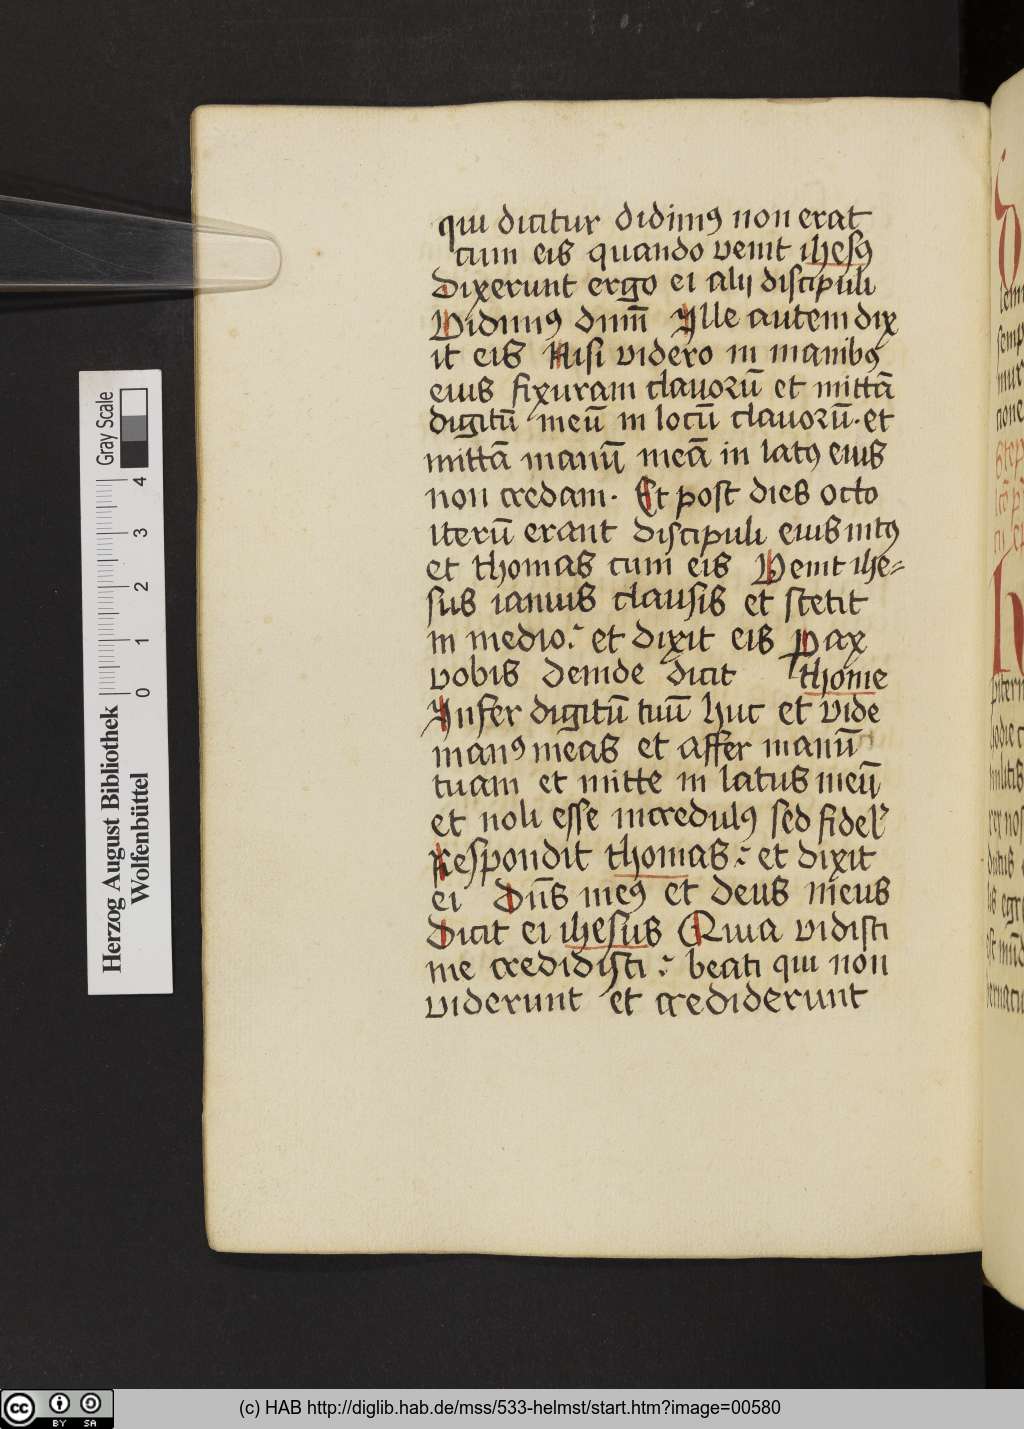 qui dicitur didimꝰ non erat
cum eis quando venit ihesꝰ
Dixerunt ergo ei alij discipuli
Vidimꝰ dnm̄ Ille autem dix
it eis Nisi videro in manibꝰ
eius fixuram clauorū et mittā
digitū meū in locū clauorū. et
mittā manū meā in latꝰ eius
non credam. Et post dies octo
iterū erant discipuli eius intꝰ
et thomas cum eis Venit ihe⸗
sus ianuis clausis et stetit
in medio: et dixit eis Pax
vobis deinde dicit thome
Infer digitū tuū huc et vide
manꝰ meas et affer manū
tuam et mitte in latus meū
et noli esse incredulꝰ sed fidel̕
Respondit thomas: et dixit
ei Dn̄s meꝰ et deus meus
Dicit ei ihesus Quia vidisti
me credidisti: beati qui non
viderunt et crediderunt
Herzog August Bibliothek
Wolfenbüttel
Gray Scale
0 1 2 3 4
cc BY SA
(c) HAB http://diglib.hab.de/mss/533-helmst/start.htm?image=00580